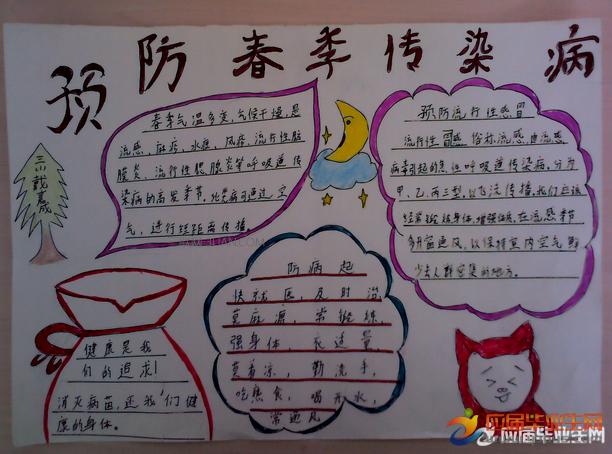 预防春季传染病
三川戴嘉成
春季气温多变,气候干燥,是
流感、麻疹、水痘、风疹、流行性脑
膜炎、流行性腮腺炎等呼吸道传
染病的高发季节,此类病可通过空
气,进行短距离传播。
预防流行性感冒
流行性感 俗称流感,由流感
病毒引起的急性呼吸道传染病,分为
甲、乙、丙三型,以飞沫传播,我们应该
经常锻练身体,增强体质,在流感季节
多开窗通风,以保持室内空气
少去人群密集的地方。
健康是我
们的追求!
消灭病菌,还我们健
康的身体。
防病起
快就医,及时治
莫麻 ,常锻练
强身体,衣适量
莫着凉,勤洗手,
吃熟食,喝开水,
常通风
应届毕业生网
应届毕业生网